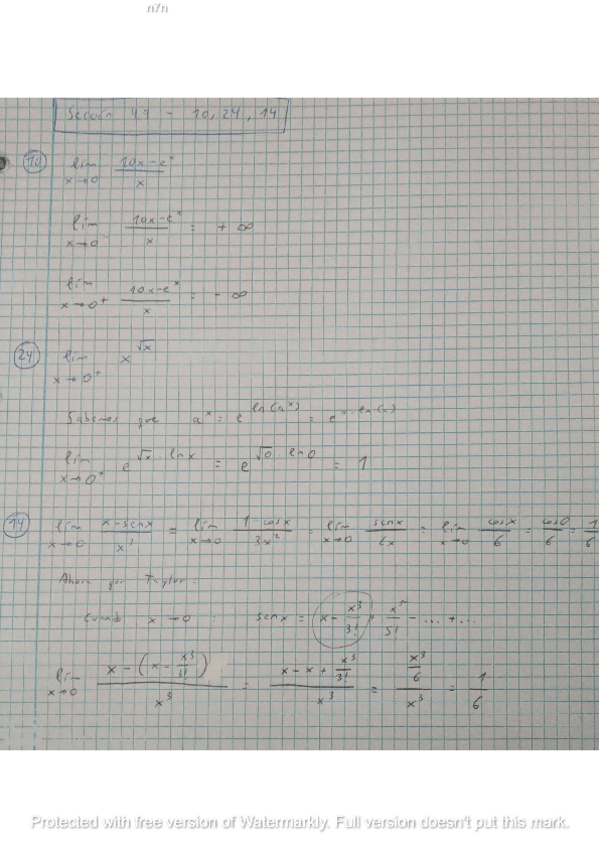 n7n
Sección 4.7 - 10, 24, 14
10 lim x→0 (10x-e^x)/x
lim x→0⁻ (10x-e^x)/x = +∞
lim x→0⁺ (10x-e^x)/x = -∞
24 lim x→0⁺ x^√x
Sabemos que a^x = e^ln(a^x) = e^x·ln(a)
lim x→0⁺ e^√x·lnx = e^√0·ln0 = 1
14 lim x→0 (x-senx)/x³ = lim x→0 (1-cosx)/3x² = lim x→0 senx/6x = lim x→0 cosx/6 = cos0/6 = 1/6
Ahora por Taylor:
Cuando x→0 : senx = x - x³/3! + x⁵/5! - ... + ...
lim x→0 (x-(x-x³/3!))/x³ = (x-x+x³/3!)/x³ = (x³/6)/x³ = 1/6
Protected with free version of Watermarkly. Full version doesn't put this mark.